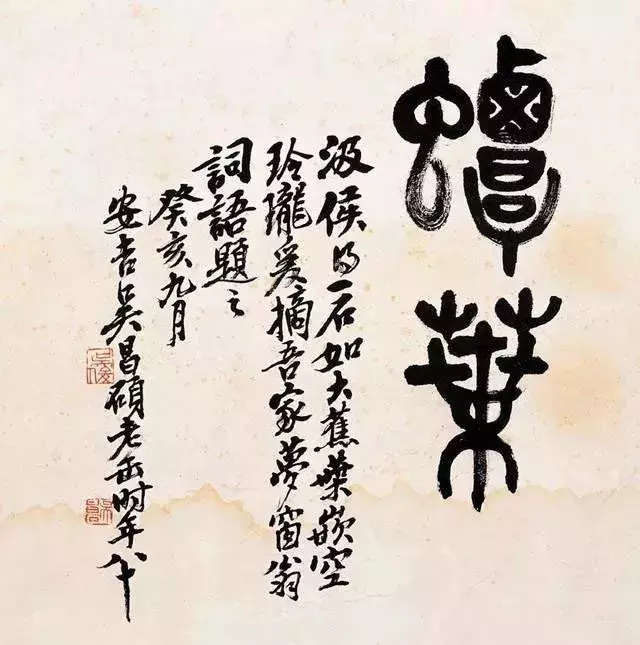 蟫葉
汲侯得一石如大蕉葉嵌空
玲瓏爰摘吾家夢窗翁
詞語題之
癸亥九月
安吉吳昌碩老缶時年八十